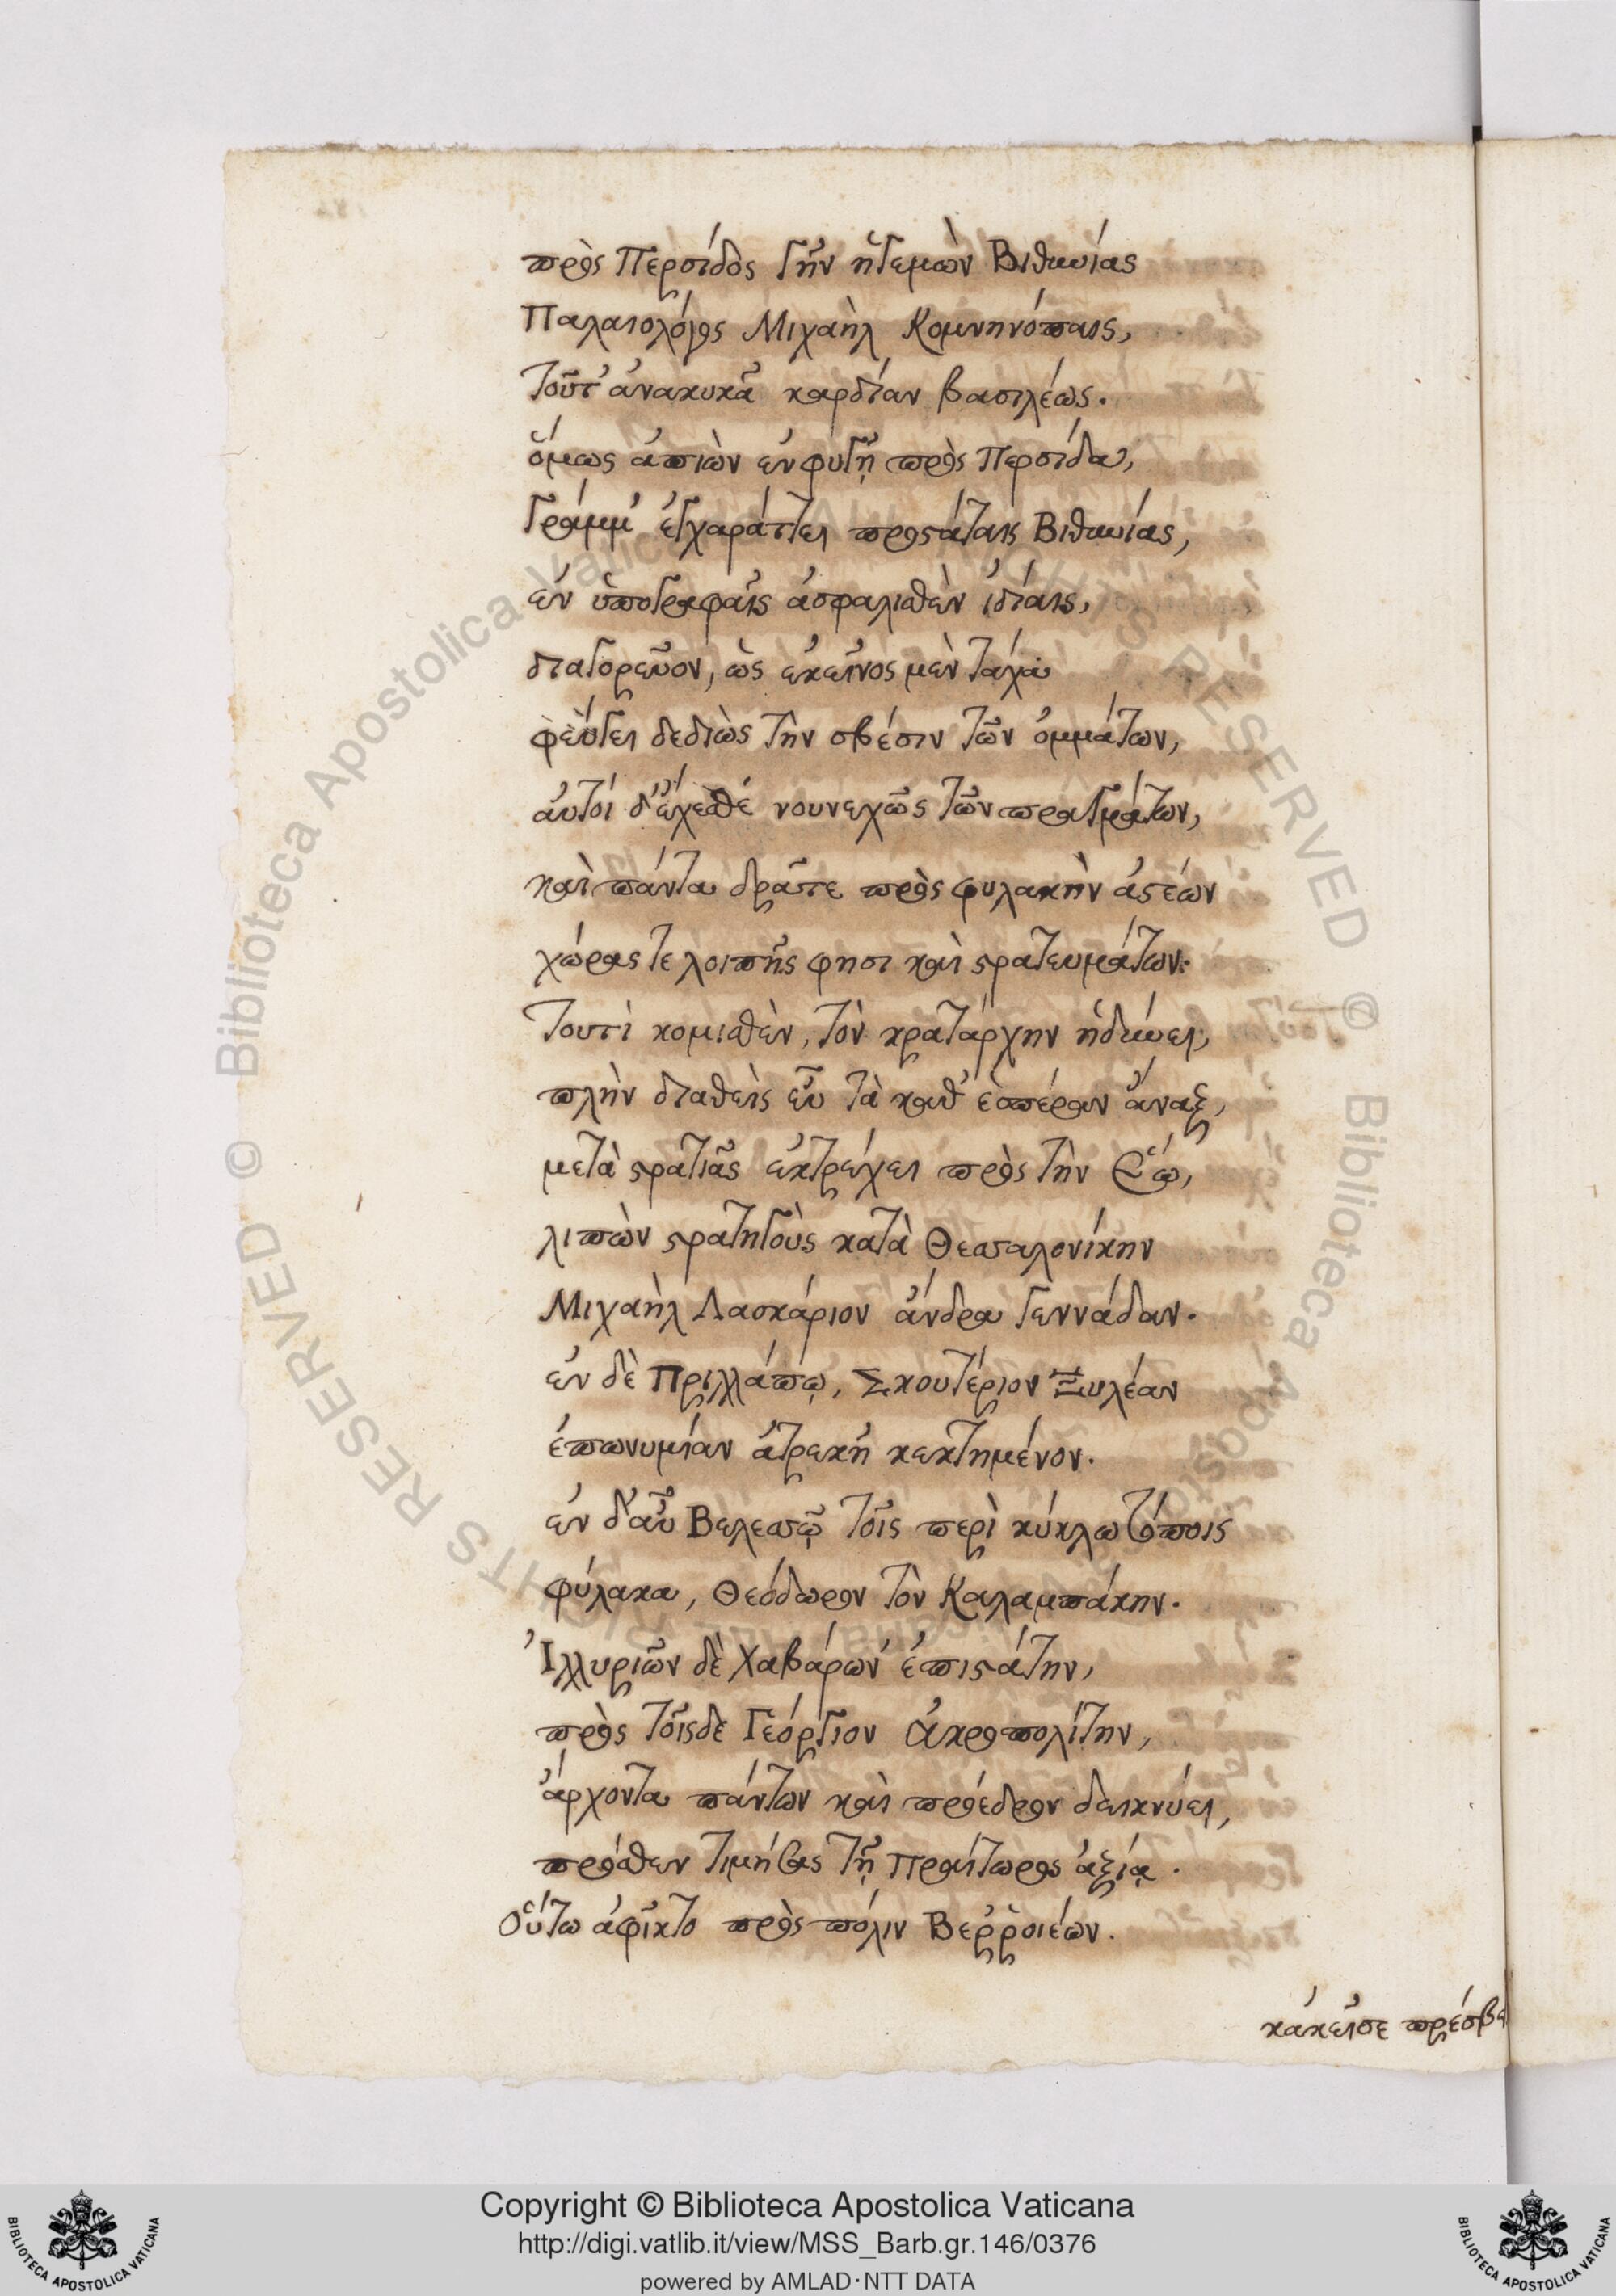 πρὸς Περσίδος γῆν ἡγεμὼν Βιθυνίας
Παλαιολόγος Μιχαὴλ Κομνηνόπαις,
τοῦτ' ἀνακυκᾷ καρδίαν βασιλέως.
ὅμως ἀπιὼν ἐν φυγῇ πρὸς Περσίδα,
γράμμ' ἐγχαράττει προστάταις Βιθυνίας,
ἐν ὑπογραφαῖς ἀσφαλισθὲν ἰδίαις,
διαγορεῦον, ὡς ἐκεῖνος μὲν τάχα
φεύγει δεδιὼς τὴν σβέσιν τῶν ὀμμάτων,
αὐτοὶ δ' ἔχεσθέ νουνεχῶς τῶν πραγμάτων,
καὶ πάντα δρᾶτε πρὸς φυλακὴν ἀστέων
χώρας τε λοιπῆς φησι καὶ στρατευμάτων.
Τουτὶ κομισθὲν, τὸν κρατάρχην ἠδύνει,
πλὴν διαθεὶς εὖ τὰ καθ' ἑσπέραν ἄναξ,
μετὰ στρατιᾶς ἐκτρέχει πρὸς τὴν Ἕω,
λιπὼν στρατηγοὺς κατὰ Θεσσαλονίκην
Μιχαὴλ Λασκάριον ἄνδρα γεννάδαν.
ἐν δὲ Πριλλάπῳ, Σκουτέριον Ξυλέαν
ἐπωνυμίαν ἀτρεκῆ κεκτημένον.
ἐν δ' αὖ Βελεσσῷ τοῖς περὶ κύκλω τόποις
φύλακα, Θεόδωρον τὸν Καλαμπάκην.
Ἰλλυριῶν δὲ Χαβάρων ἐπιστάτην,
πρὸς τοῖσδε Γεόργιον Ἀκροπολίτην,
ἄρχοντα πάντων καὶ πρόεδρον δεικνύει,
πρόσθεν τιμήσας τῇ Πραίτωρος ἀξίᾳ.
Οὕτω ἀφῖκτο πρὸς πόλιν Βεῤῥοιέων.
κἀκεῖσε πρέσβε
Copyright © Biblioteca Apostolica Vaticana
http://digi.vatlib.it/view/MSS_Barb.gr.146/0376
powered by AMLAD·NTT DATA